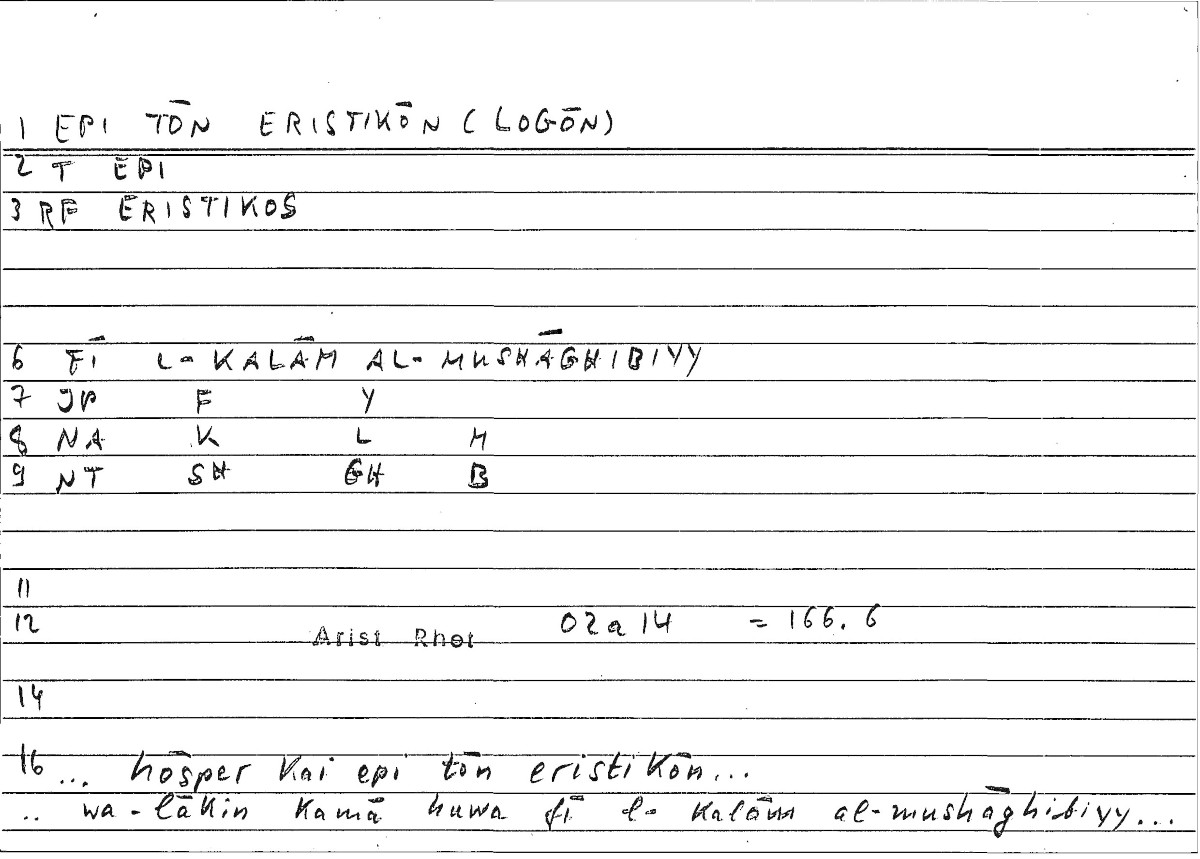 1 EPI TŌN ERISTIKŌN (LOGŌN)
2 T EPI
3 RF ERISTIKOS
6 FĪ L-KALĀM AL-MUSHĀGHIBIYY
7 JP F Y
8 NA K L M
9 NT SH GH B
11
12 Arist Rhet 02a14 = 166.6
14
16 ... hōsper kai epi tōn eristikōn...
.. wa-lākin kamā huwa fī l-kalām al-mushāghibiyy...